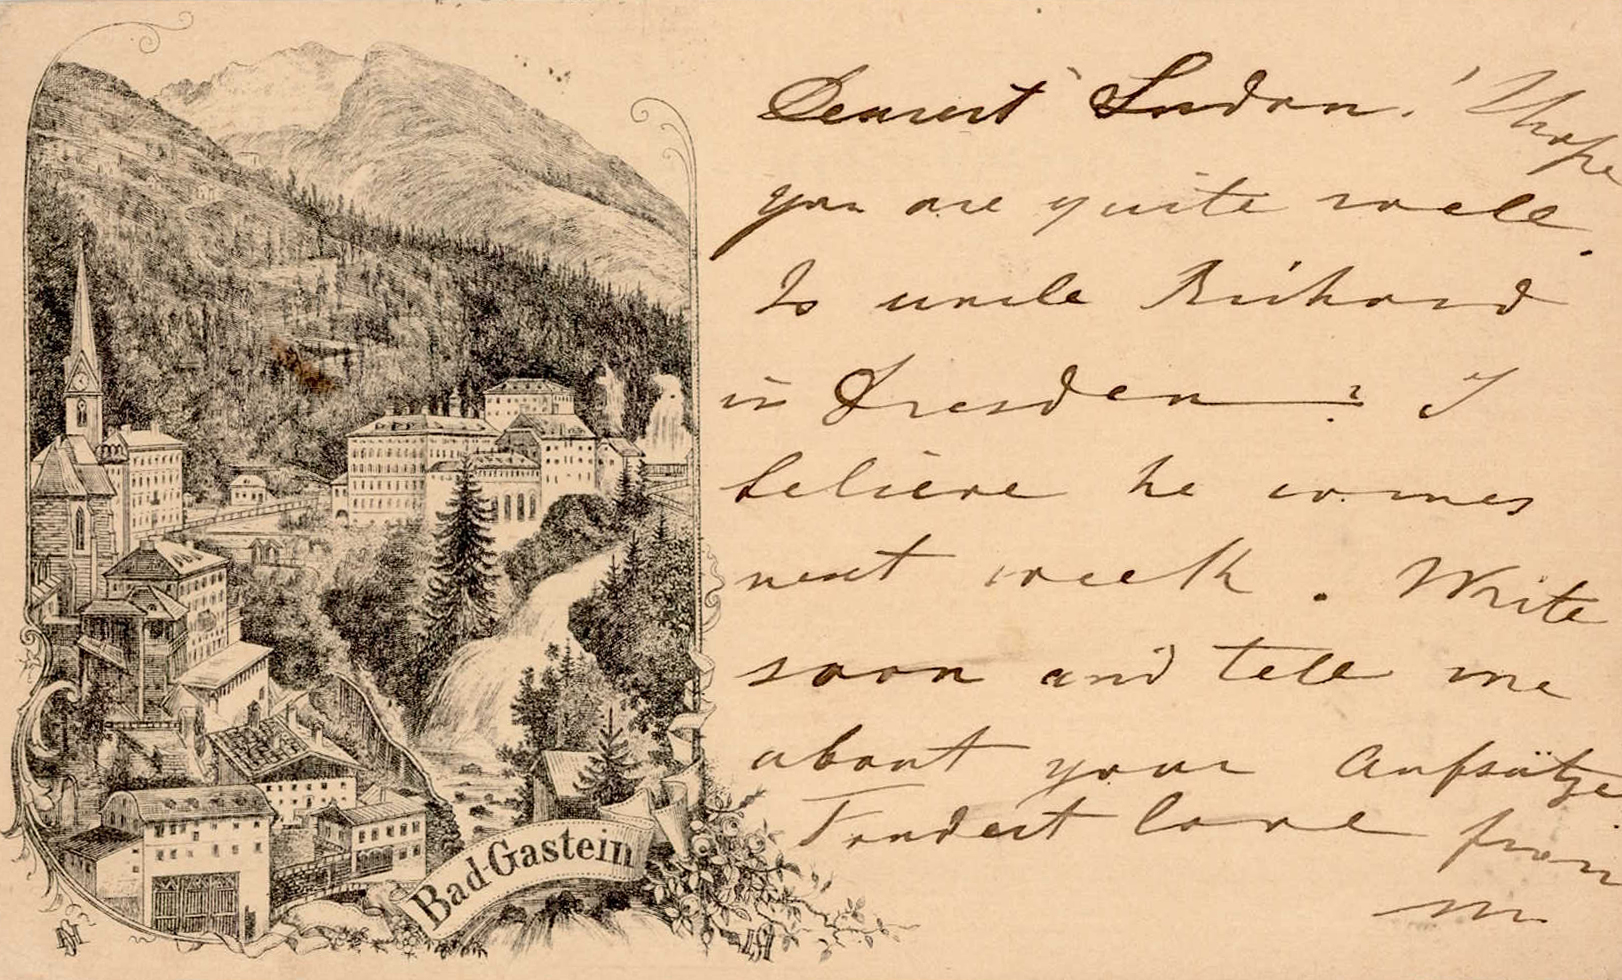 Dearest ! I hope
you are quite well.
Is uncle Richard
in Dresden ? I
believe he comes
next week. Write
soon and tell me
about your Aufsätze
Fondest love from
M
Bad-Gastein